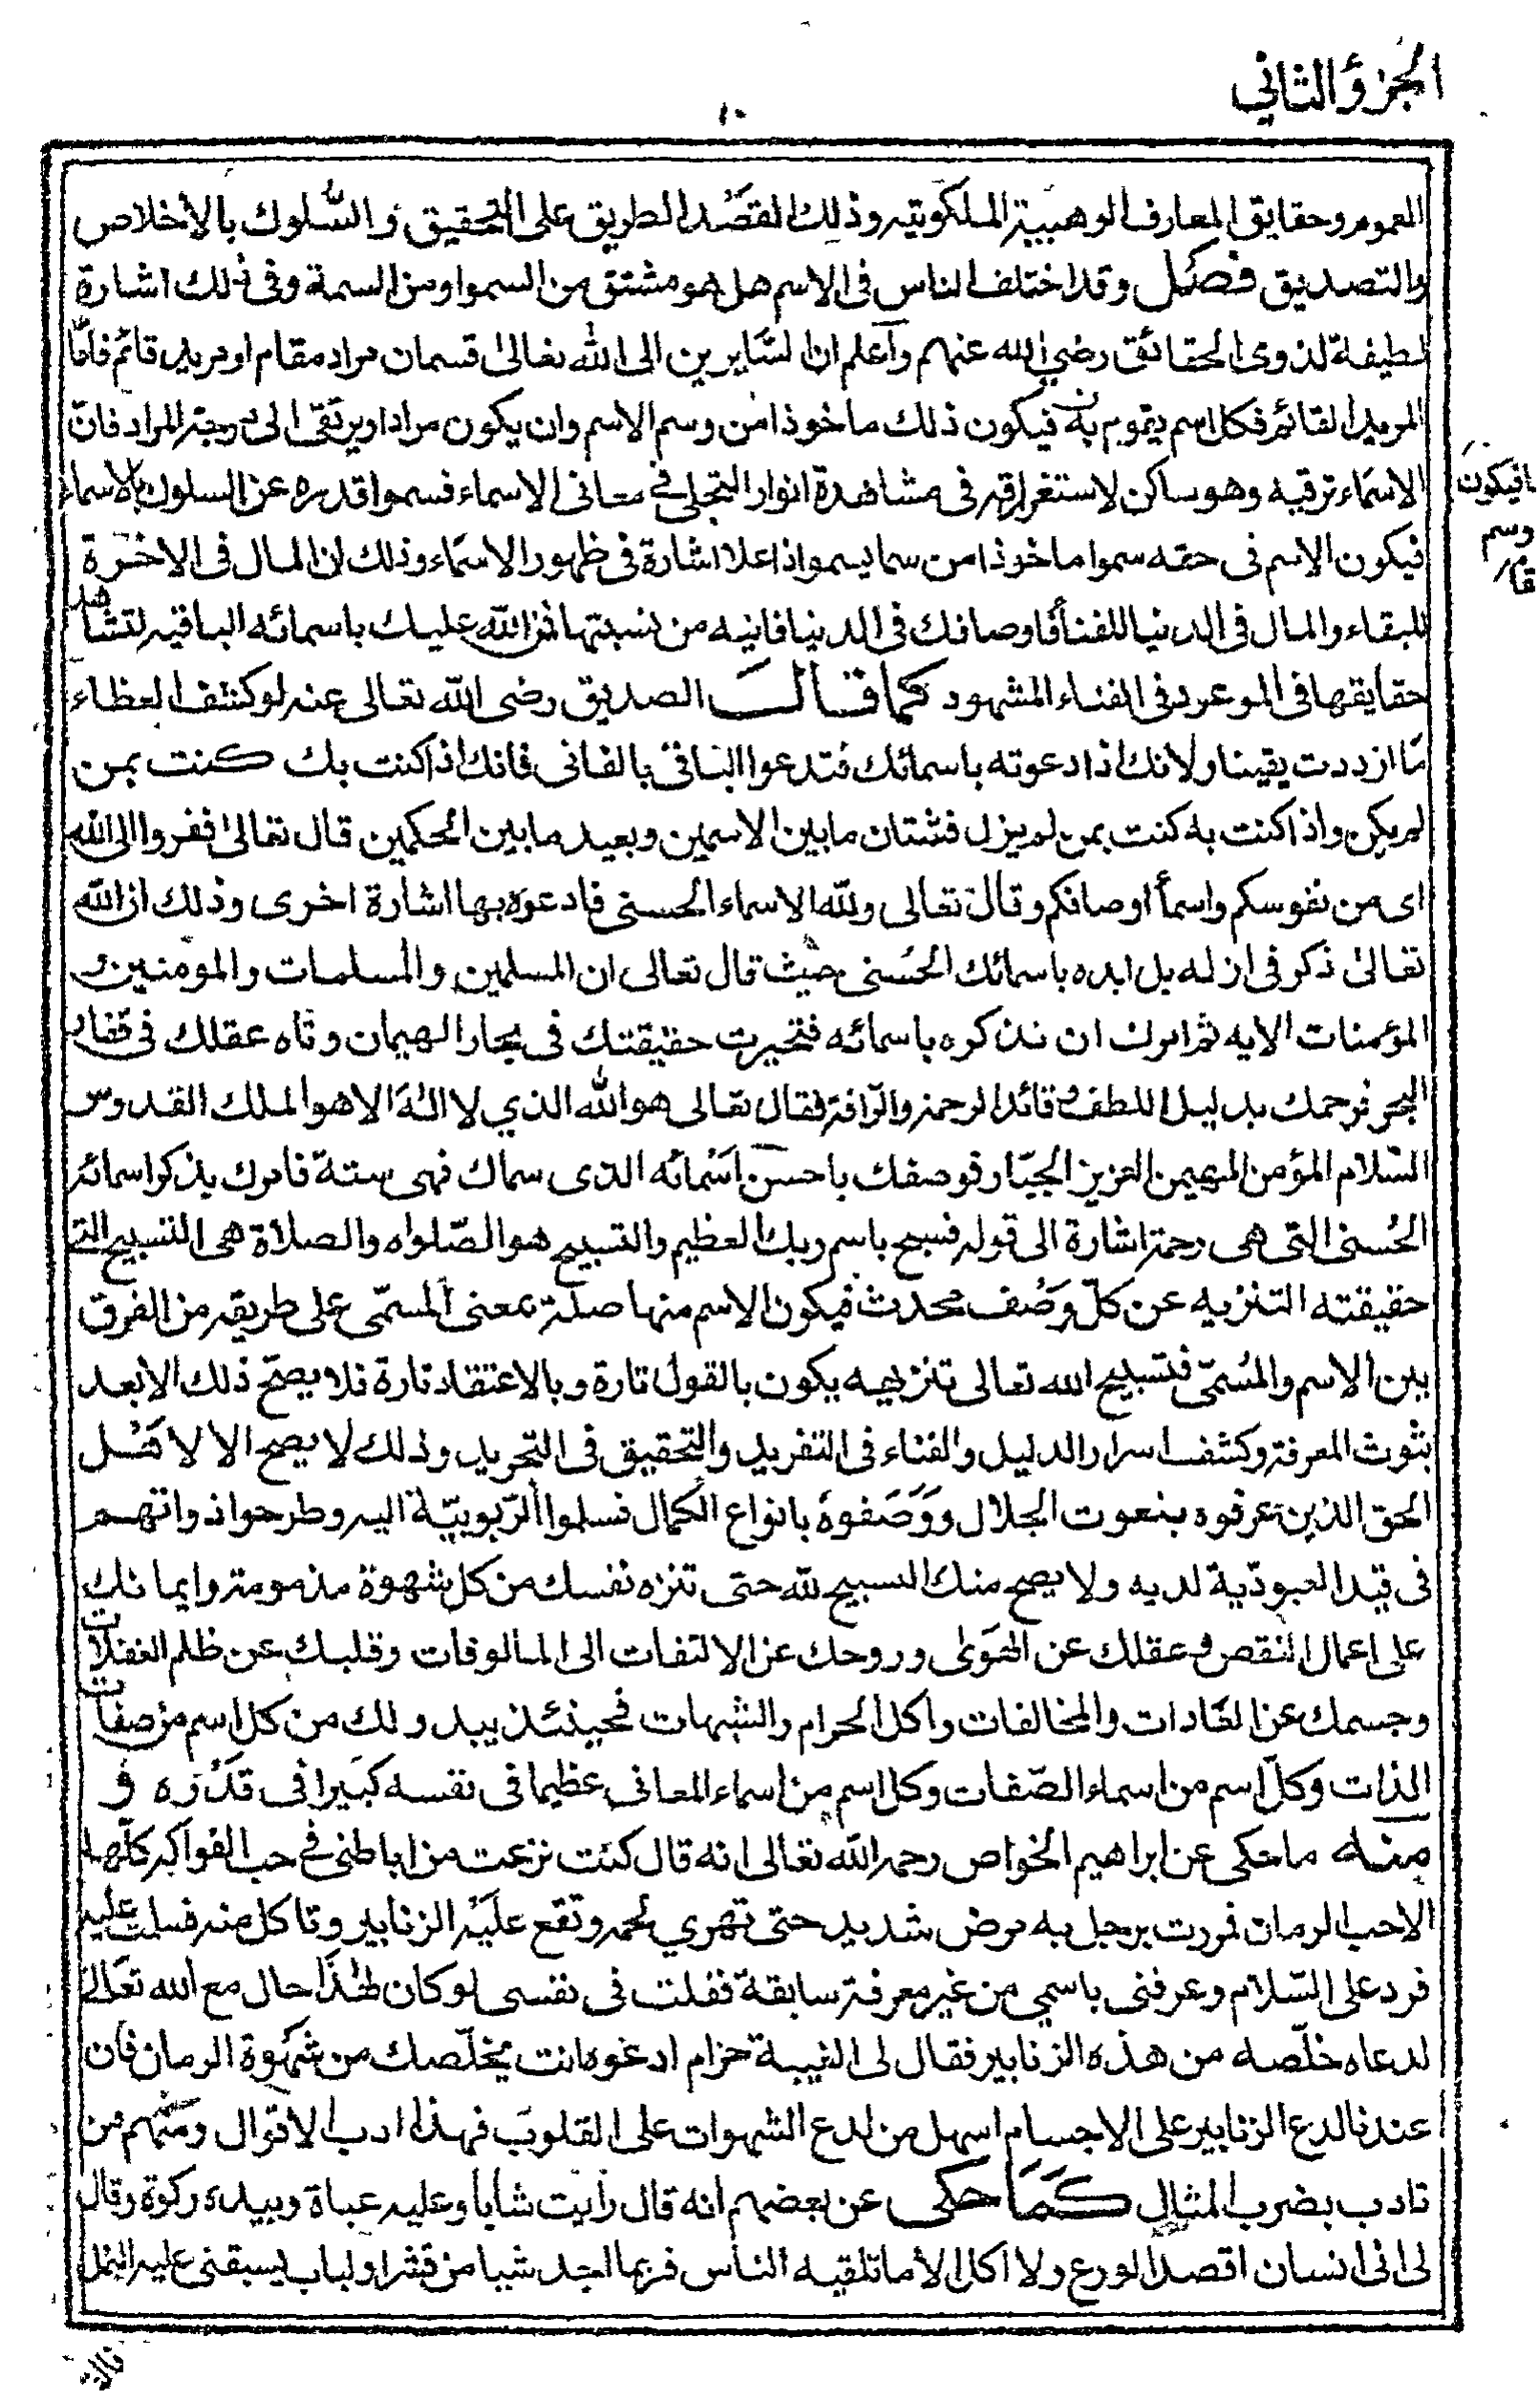 الجزؤ الثاني
١٠
العموم وحقايق المعارف الوهبية الملكوتيه وذلك القصد الطريق على التحقيق والسلوك بالاخلاص
والتصديق فصل وقد اختلف الناس فى الاسم هل هو مشتق من السموا ومن السمة وفى ذلك اشارة
لطيفة لذوى الحقائق رضي الله عنهم واعلم ان السايرين الى الله تعالى قسمان مراد مقام او مريد قائم فامّا
المريد القائم فكل اسم يقوم به فيكون ذلك ماخوذا من وسم الاسم وان يكون مرادا ويرتقى الى درجة المراد فانّ
الاسماء ترقيه وهو ساكن لاستغراقه فى مشاهدة انوار التجلى فى معانى الاسماء فسموا قدره عن السلوك بالاسماء
فيكون الاسم فى حقه سموا ماخوذا من سما يسموا ذا علا اشارة فى ظهور الاسماء وذلك ان المال فى الاخرة
للبقاء والمال فى الدنيا للفنا فاوصافك فى الدنيا فانيه من نسبتها فمن الله عليك باسمائه الباقيه لتشاهد
حقايقها فى الموعود فى الفناء المشهود كما قال الصديق رضى الله تعالى عنه لو كشف الغطاء
ما ازددت يقينا ولانك اذا دعوته باسمائك فتدعوا الباقى بالفانى فانك اذا كنت بك كنت بمن
لم يكن واذا كنت به كنت بمن لم يزل فشتان مابين الاسمين وبعيد مابين الحكمين قال تعالى ففروا الى الله
اى من نفوسكم واسماْ اوصافكم وقال تعالى ولله الاسماء الحسنى فادعوه بها اشارة اخرى وذلك ان الله
تعالى ذكر فى ازله بل ابده باسمائك الحسنى حيث قال تعالى ان المسلمين والمسلمات والمومنين و
المؤمنات الايه ثم امرك ان تذكره باسمائه فتحيرت حقيقتك فى بحار الهيمان وتاه عقلك فى قفار
البحر فرحمك بدليل اللطف وقائد الرحمة والرافة فقال تعالى هو الله الذي لا اله الا هو الملك القدوس
السّلام المؤمن المهيمن العزيز الجبّار فوصفك باحسن اسمائه الذى سماك فهى ستة فامرك بذكر اسمائه
الحُسنى التى هى رحمة اشارة الى قوله فسبح باسم ربك العظيم والتسبيح هو الصّلواه والصلاة هى التسبيح التى
حقيقته التنزيه عن كلّ وَصْف محدث فيكون الاسم منها صلة بمعنى المسمّى على طريقه من الفرق
بين الاسم والمسّمى فتسبيح الله تعالى تنزيهه يكون بالقول تارة وبالاعتقاد تارة فلا يصحّ ذلك الا بعد
بثوث المعرفة وكشف اسرار الدليل والفناء فى التفريد والتحقيق فى التجريد وذلك لا يصح الا لاهل
الحق الذين عرفوه بنعوت الجلال ووَصَفوهُ بانواع الكمال فسلموا الرّبوبيّة اليه وطرحوا ذواتهم
فى قيد العبوديّة لديه ولا يصح منك التسبيح لله حتى تنزه نفسك من كل شهوة مذمومة وايمانك
على اعمال النقص وعقلك عن الهوى وروحك عن الالتفات الى المالوفات وقلبك عن ظلم الغفلات
وجسمك عن العادات والمخالفات واكل الحرام والشبهات فحينئذ يبدو لك من كل اسم من صفات
الذات وكلّ اسم من اسماء الصّفات وكل اسم من اسماء المعانى عظيما فى نفسه كبيرا فى قدْره و
منه ماحكى عن ابراهيم الخواص رحمه الله تعالى انه قال كنت نزعت من باطنى حب الفواكه كلّها
الاحب الرمان فمررت برجل به مرض شديد حتى تهري لحمه وتقع عليْه الزنابير وتاكل منه فسلمت عليه
فرد على السّلام وعرفنى باسمي من غير معرفة سابقة فقلت فى نفسى لو كان لهذا حال مع الله تعالى
لدعاه خلّصه من هذه الزنابير فقال لى الغيبة حرام ادعوه انت يخلّصك من شهوة الرمان فان
عندنا لدع الزنابير على الاجسام اسهل من لدع الشهوات على القلوب فهذا ادب الاقوال ومنهم من
تادب بضرب المثال كما حكى عن بعضهم انه قال رايت شابا وعليه عباة وبيده ركوة وقال
لى انى انسان اقصد الورع ولا اكل الا ماتلقيه الناس فربما اجد شيا من قشر او لباب يسبقنى عليه النمل
افيكون
وسم